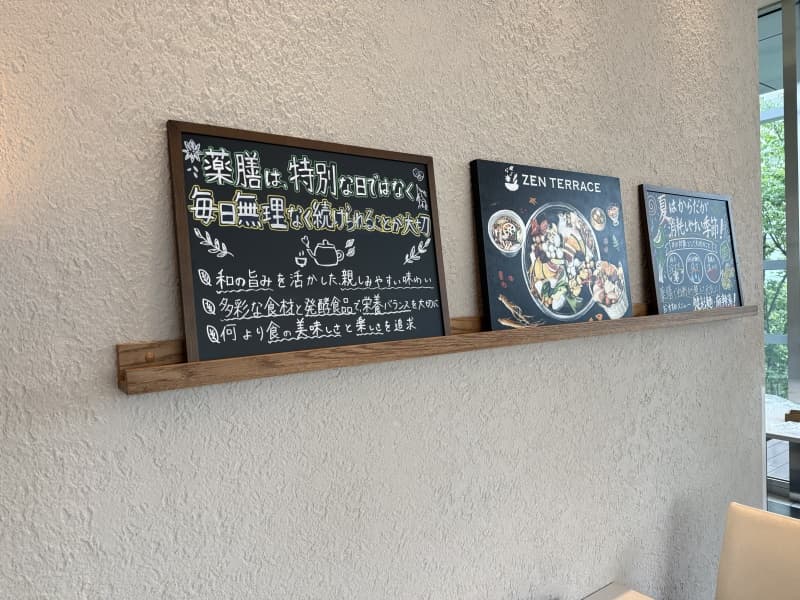 薬膳は、特別な日ではなく、
毎日無理なく続けられることが大切
和の旨みを活かした、親しみやすい味わい
多彩な食材と発酵食品で、栄養バランスを大切に
何より食の美味しさと楽しさを追求
ZEN TERRACE
夏はからだが
消耗しやすい季節!